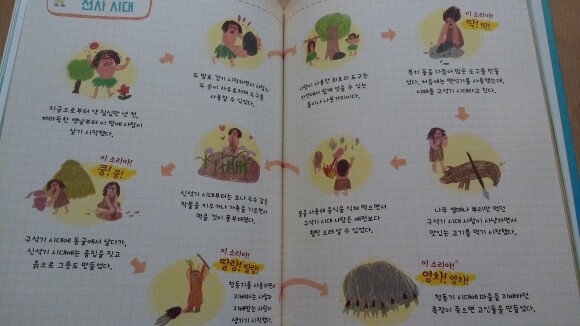 선사 시대
지금으로부터 약 칠십만 년 전,
까마득한 옛날부터 이 땅에 사람이
살기 시작했다.
두 발로 걷기 시작하면서 사람의
두 손이 자유로워져 도구를
사용할 수 있었다.
사람이 사용한 최초의 도구는
자연에서 쉽게 얻을 수 있는
돌이나 나뭇가지이다.
이 소리야!
딱! 딱!
뾰지 돌을 다듬어 많은 도구를 만들
었다. 처음에는 뗀석기를 사용했는데,
이때를 구석기 시대라고 한다.
나무 열매나 뿌리만 먹던
구석기 시대 사람이 사냥하면서
맛있는 고기를 먹기 시작했다.
불을 사용해 음식을 익혀 먹으면서
구석기 시대 사람은 예전보다
훨씬 오래 살 수 있었다.
신석기 시대부터는 조나 수수 같은
작물을 키우거나 가축을 기르면서
먹을 것이 풍부해졌다.
이 소리야!
쿵! 쿵!
구석기 시대에 동굴에서 살다가,
신석기 시대에는 움집을 짓고
흙으로 그릇도 만들었다.
이 소리야!
딸랑! 딸랑!
청동기를 사용하면서
지배하는 사람과
지배받는 사람이
생기기 시작했다.
이 소리야!
영차! 영차!
청동기 시대에 마을을 지배하던
족장이 죽으면 고인돌을 만들었다.